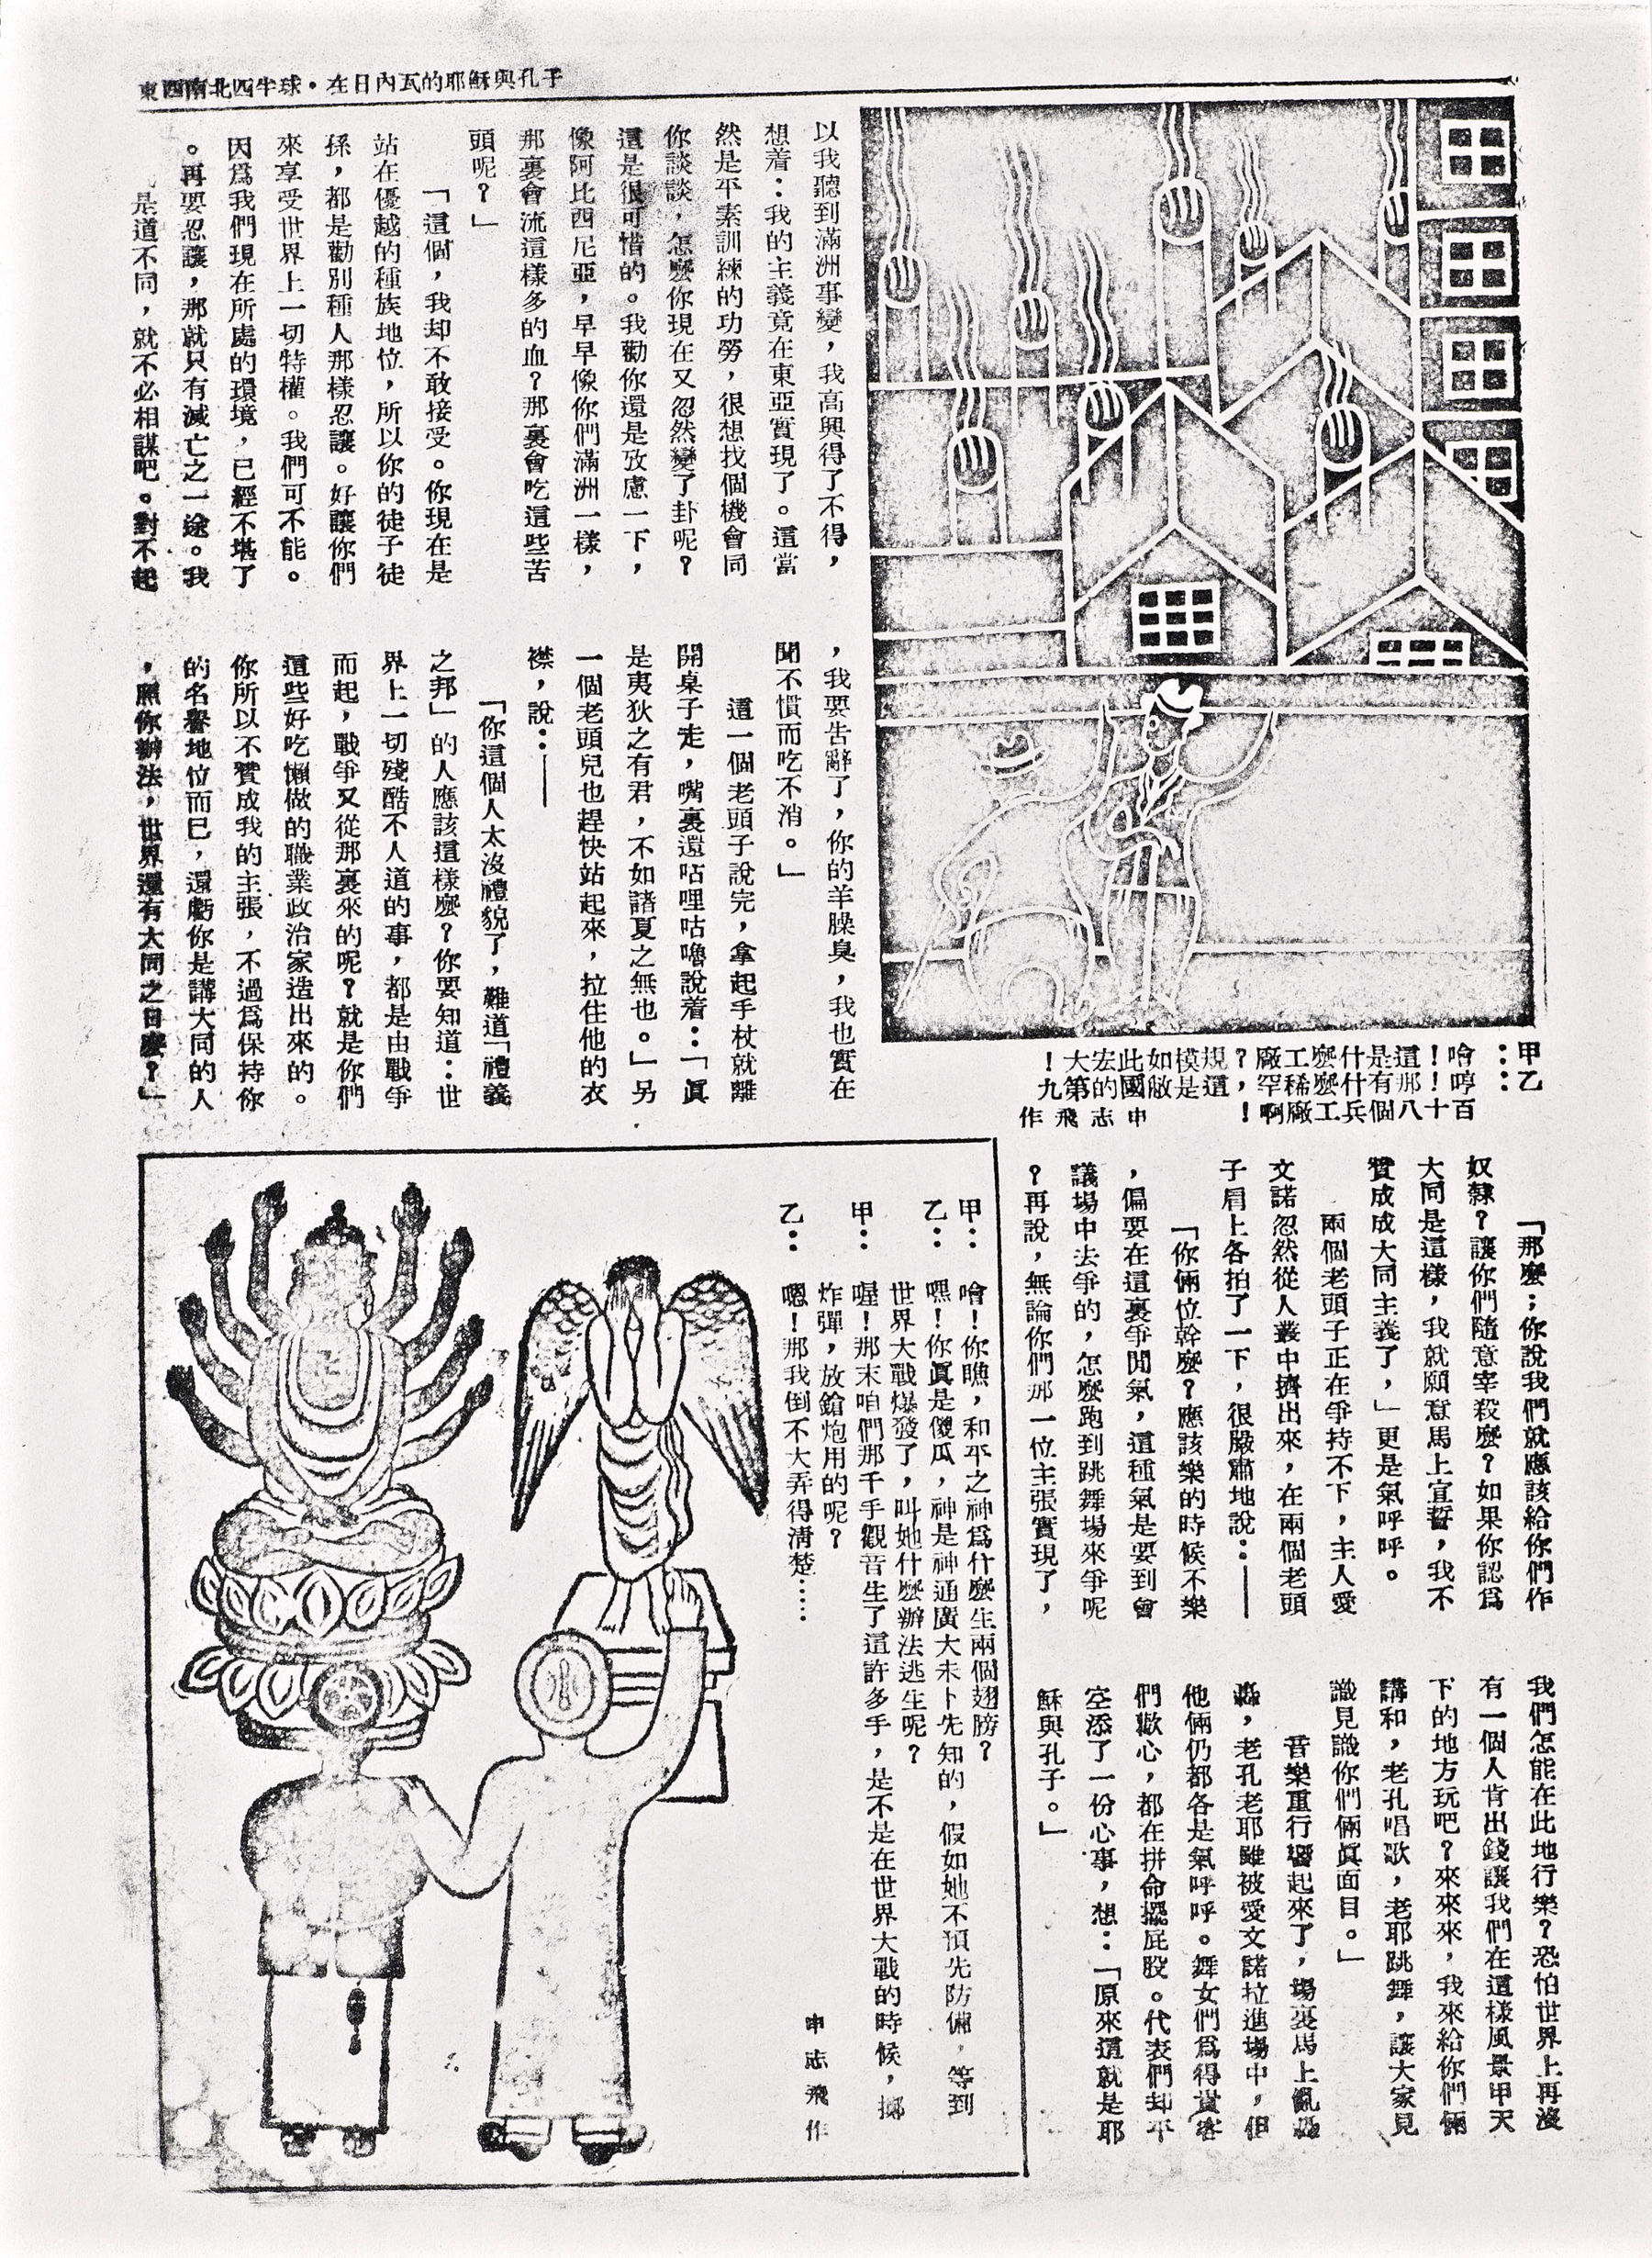 東西南北四半球・在日內瓦的耶穌與孔子
以我聽到滿洲事變，我高興得了不得，
想着：我的主義竟在東亞實現了。這當
然是平素訓練的功勞，很想找個機會同
你談談，怎麼你現在又忽然變了卦呢？
這是很可惜的。我勸你還是攷慮一下，
像阿比西尼亞，早早像你們滿洲一樣，
那裏會流這樣多的血？那裏會吃這些苦
頭呢？」
「這個，我却不敢接受。你現在是
站在優越的種族地位，所以你的徒子徒
孫，都是勸別種人那樣忍讓。好讓你們
來享受世界上一切特權。我們可不能。
因爲我們現在所處的環境，已經不堪了
。再要忍讓，那就只有滅亡之一途。我
是道不同，就不必相謀吧。對不起
，我要告辭了，你的羊臊臭，我也實在
聞不慣而吃不消。」
這一個老頭子說完，拿起手杖就離
開桌子走，嘴裏還咕哩咕嚕說着：「眞
是夷狄之有君，不如諸夏之無也。」另
一個老頭兒也趕快站起來，拉住他的衣
襟，說：——
「你這個人太沒禮貌了，難道「禮義
之邦」的人應該這樣麼？你要知道：世
界上一切殘酷不人道的事，都是由戰爭
而起，戰爭又從那裏來的呢？就是你們
這些好吃懶做的職業政治家造出來的。
你所以不贊成我的主張，不過爲保持你
的名譽地位而已，還虧你是講大同的人
，照你辦法，世界還有大同之日麼？」
甲：噲！這是什麼工廠？規模如此宏大！
乙：哼！那有什麼稀罕，這是敝國的第九
百十八個兵工廠啊！
申志飛作
「那麼；你說我們就應該給你們作
奴隸？讓你們隨意宰殺麼？如果你認爲
大同是這樣，我就願意馬上宣誓，我不
贊成成大同主義了，」更是氣呼呼。
兩個老頭子正在爭持不下，主人愛
文諾忽然從人叢中擠出來，在兩個老頭
子肩上各拍了一下，很嚴肅地說：——
「你倆位幹麼？應該樂的時候不樂
，偏要在這裏爭閒氣，這種氣是要到會
議場中去爭的，怎麼跑到跳舞場來爭呢
？再說，無論你們那一位主張實現了，
我們怎能在此地行樂？恐怕世界上再沒
有一個人肯出錢讓我們在這樣風景甲天
下的地方玩吧？來來來，我來給你們倆
講和，老孔唱歌，老耶跳舞，讓大家見
識見識你們倆眞面目。」
音樂重行響起來了，場裏馬上亂
，老孔老耶雖被愛文諾拉進場中，但
他倆仍都各是氣呼呼。舞女們爲得貴客
們歡心，都在拼命擺屁股。代表們却平
空添了一份心事，想：「原來這就是耶
穌與孔子。」
甲：噲！你瞧，和平之神爲什麼生兩個翅膀？
乙：嘿！你眞是傻瓜，神是神通廣大未卜先知的，假如她不預先防備，等到
世界大戰爆發了，叫她什麼辦法逃生呢？
甲：喔！那末咱們那千手觀音生了這許多手，是不是在世界大戰的時候，擲
炸彈，放鎗炮用的呢？
乙：嗯！那我倒不大弄得清楚……
申志飛作